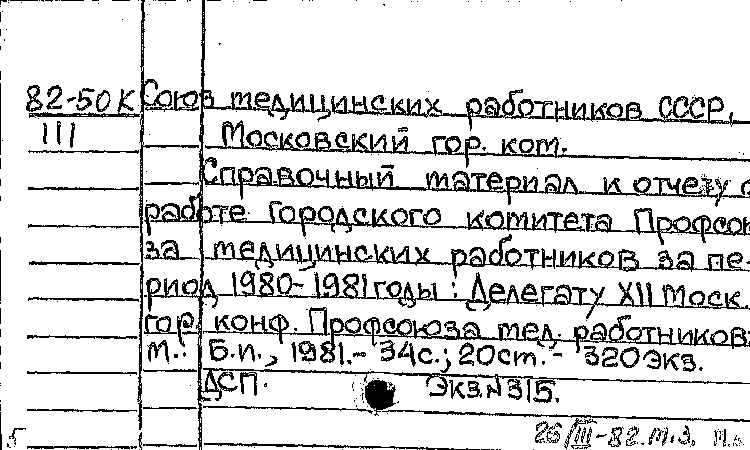 82-50К Союз медицинских работников СССР,
III Московский гор. ком.
Справочный материал к отчету о
работе Городского комитета Профсою
за медицинских работников за пе-
риод 1980-1981 годы : Делегату XII Моск.
гор. конф. Профсоюза мед. работников.
М.: Б.и., 1981.- 34с.; 20см.- 320экз.
ДСП. Экз.№315.
26/III-82.м.з.